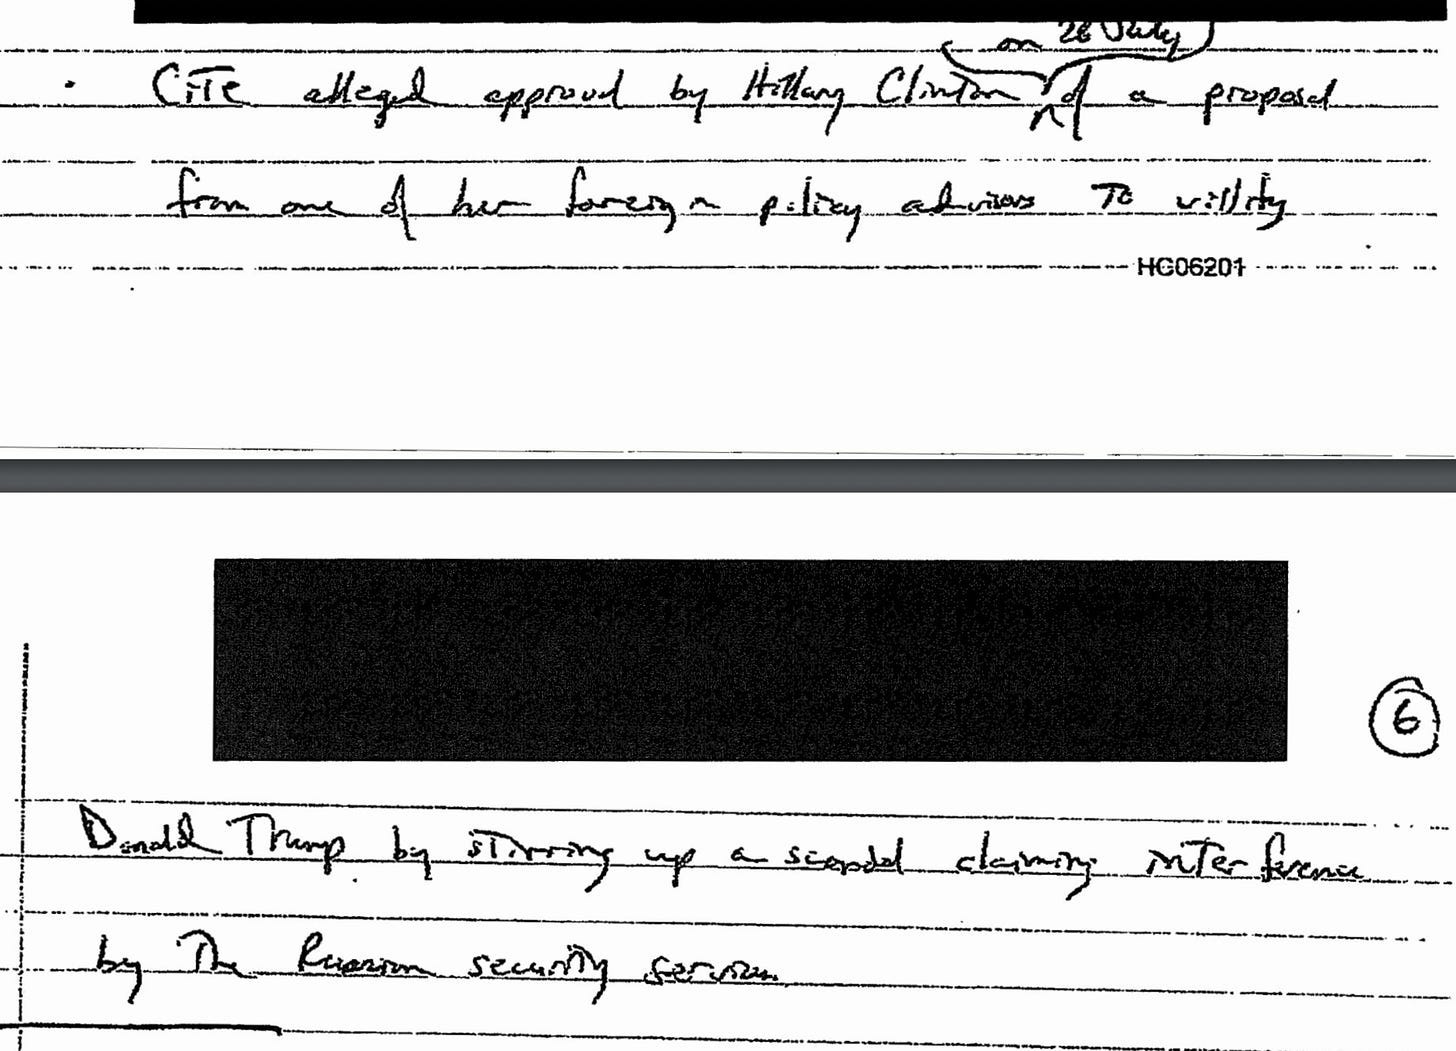 on 26 July
• CITE alleged approval by Hillary Clinton of a proposal
from one of her foreign policy advisors to vilify
HG06201
6
Donald Trump by stirring up a scandal claiming interference
by the Russian security services